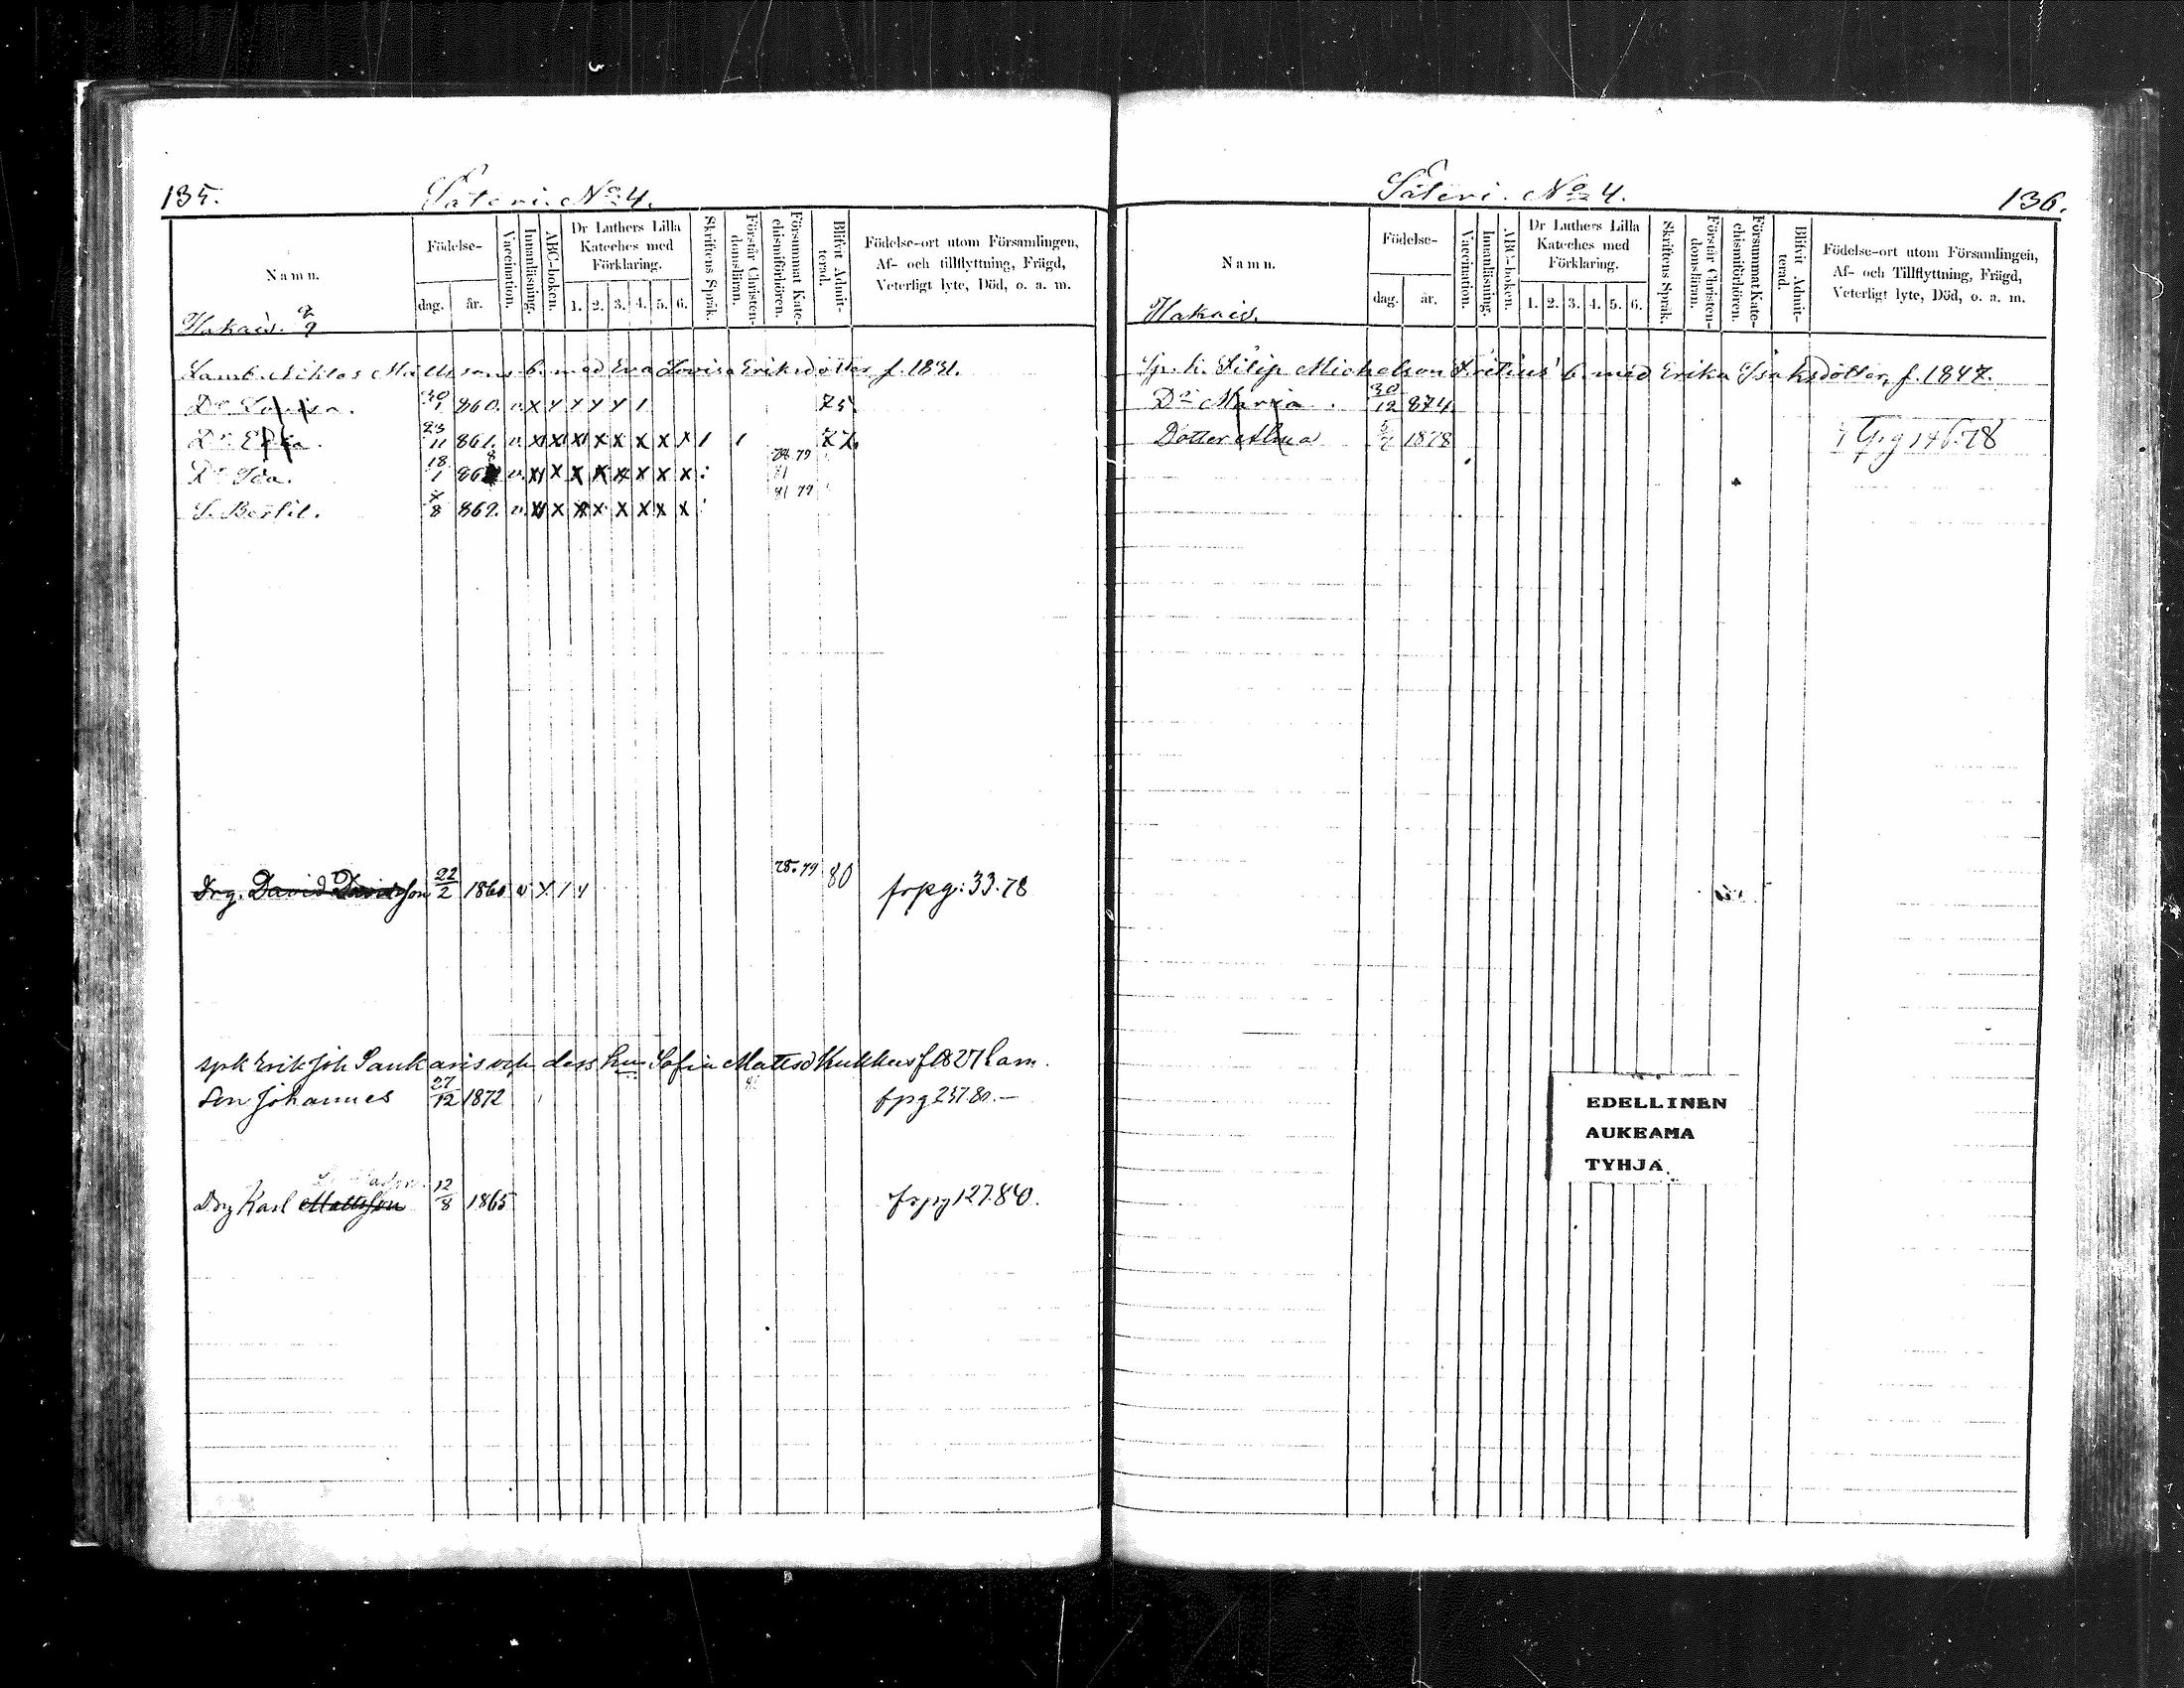 135.
Säteri. No 4.
Namn.
Hakais.
Födelse-
dag.
år.
Vaccination.
Innanläsning.
ABC-boken.
Dr Luthers Lilla
Kateches med
Förklaring.
1. 2. 3. 4. 5. 6.
Skriftens Språk.
Förstår Christen-
domsläran.
Försummat Kate-
chismiförhören.
Blifvit Admit-
terad.
Födelse-ort utom Församlingen,
Af- och tillflyttning, Frägd,
Veterligt lyte, Död, o. a. m.
Lamb. Niklas Mattssons b. med Eva Lovisa Eriksdotter f. 1831.
Dr Lovisa. 30/1 860. v. X Y Y Y Y 1 75
Dr Erika. 23/11 861. v. X X X X X X X X 1 1 77
Dr Ida. 18/1 868 v. X X X X X X X X : 78 79 81
S. Bertil. 8 869. v. X X X X X X X X 81 79
Drg. David Davidsson 22/2 1860 v X 1 Y 78. 79 80 frpg: 33. 78
spk Erik Joh Saukaris och dess hu Sofia Mattsd Kukkus f 1827 barn.
Son Johannes 27/12 1872 fpg 237. 80. —
Drg Karl Mattsson 12/8 1865 frpg 127. 80.
Säteri. No 4.
136.
Namn.
Hakais.
Födelse-
dag.
år.
Vaccination.
Innanläsning.
ABC-boken.
Dr Luthers Lilla
Kateches med
Förklaring.
1. 2. 3. 4. 5. 6.
Skriftens Språk.
Förstår Christen-
domsläran.
Försummat Kate-
chismiförhören.
Blifvit Admit-
terad.
Födelse-ort utom Församlingen,
Af- och Tillflyttning, Frägd,
Veterligt lyte, Död, o. a. m.
Sp. h. Filip Michelson b. med Erika Isaksdotter, f. 1847.
Dr Maria. 30/12 874
Dotter Alma 5/7 1878 Tpg 146. 78
EDELLINEN
AUKEAMA
TYHJÄ.